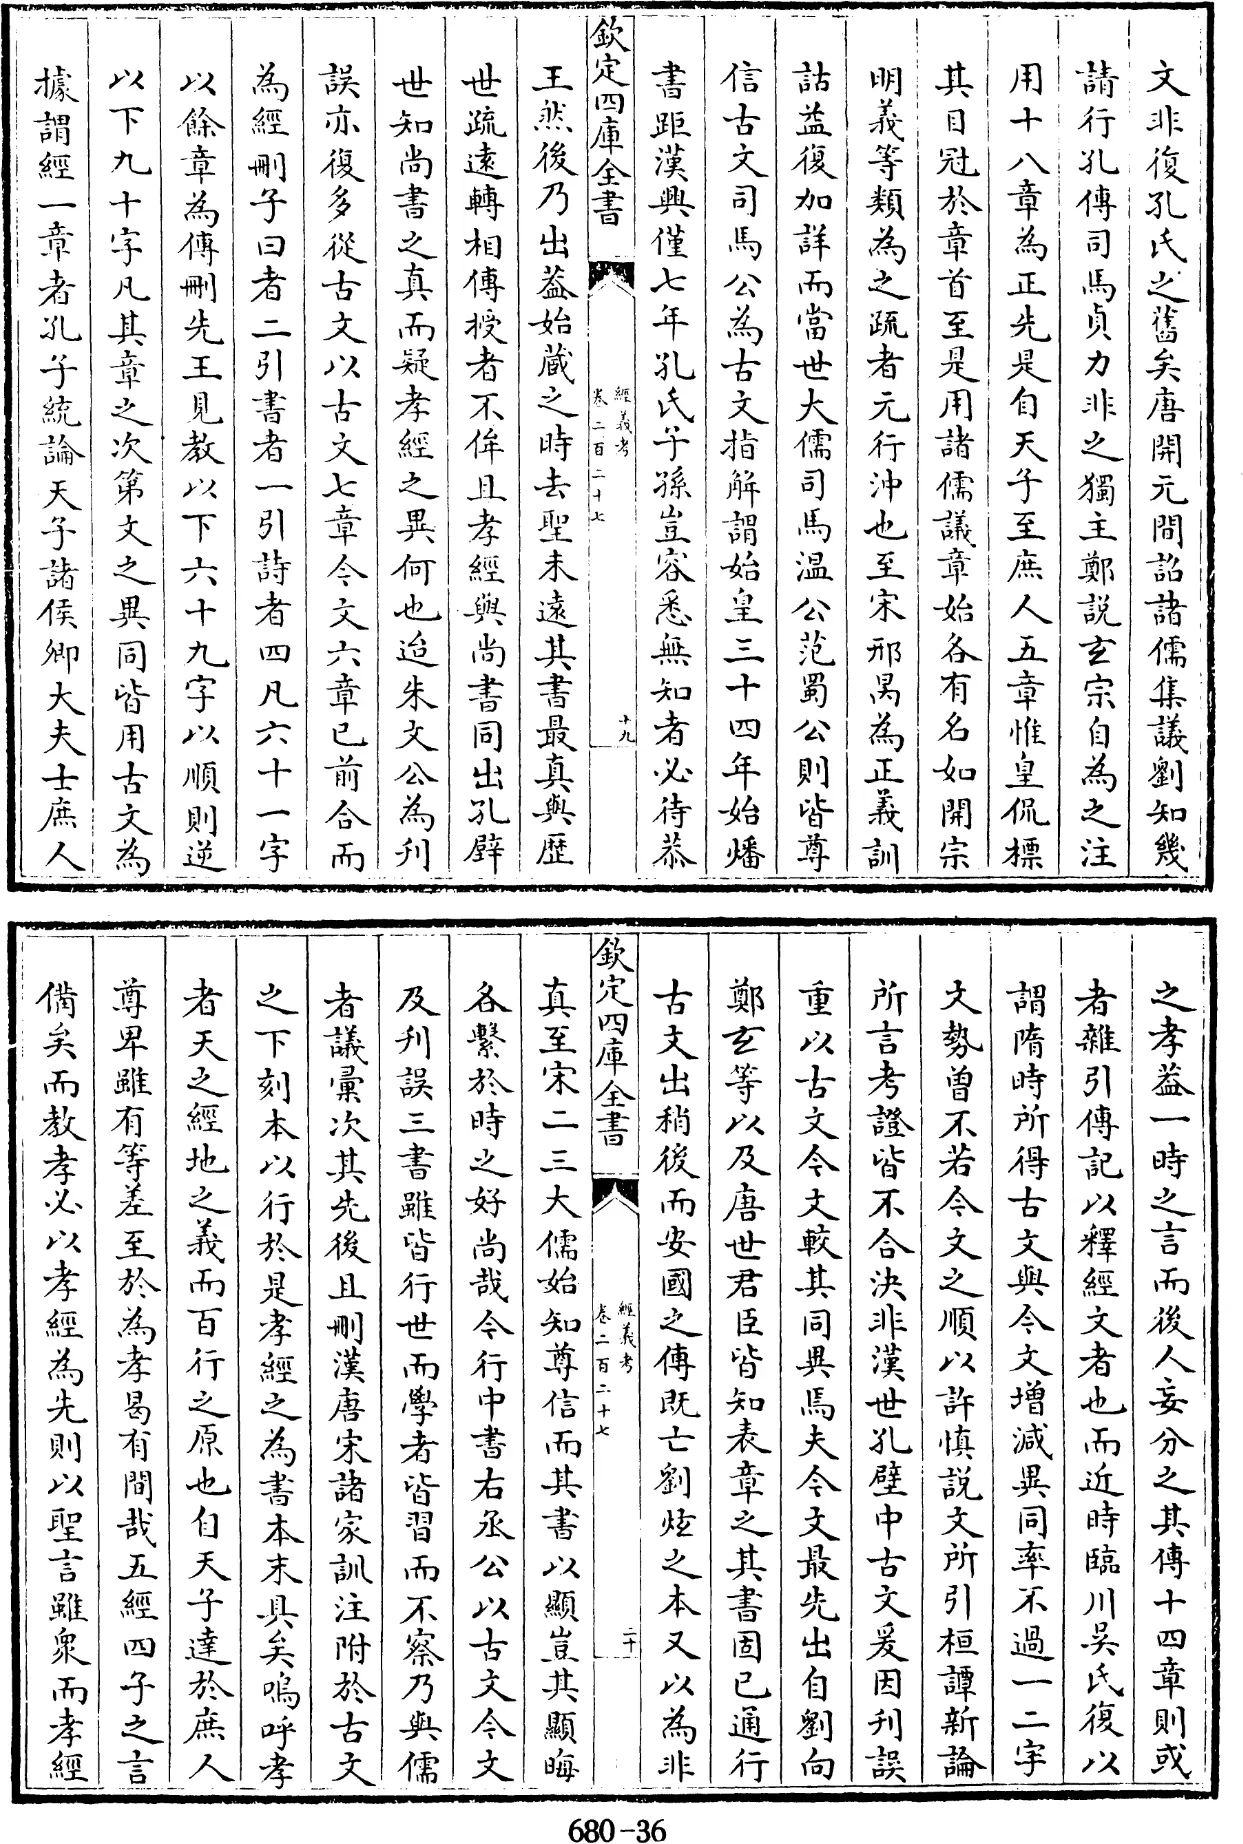 文非復孔氏之舊矣唐開元間詔諸儒集議劉知幾
請行孔傳司馬貞力非之獨主鄭説玄宗自為之注
用十八章為正先是自天子至庶人五章惟皇侃標
其目冠於章首至是用諸儒議章始各有名如開宗
明義等類為之疏者元行沖也至宋邢昺為正義訓
詁益復加詳而當世大儒司馬温公范蜀公則皆尊
信古文司馬公為古文指解謂始皇三十四年始燔
書距漢興僅七年孔氏子孫豈容悉無知者必待恭
欽定四庫全書
經義考
卷二百二十七
十九
王然後乃出蓋始蔵之時去聖未遠其書最真與歴
世疏遠轉相傳授者不侔且孝經與尚書同出孔壁
世知尚書之真而疑孝經之異何也迨朱文公為刋
誤亦復多從古文以古文七章今文六章已前合而
為經刪子曰者二引書者一引詩者四凡六十一字
以餘章為傳刪先王見教以下六十九字以順則逆
以下九十字凡其章之次第文之異同皆用古文為
據謂經一章者孔子統論天子諸侯卿大夫士庶人
之孝蓋一時之言而後人妄分之其傳十四章則或
者雜引傳記以釋經文者也而近時臨川吳氏復以
謂隋時所得古文與今文增減異同率不過一二字
文勢曾不若今文之順以許慎説文所引桓譚新論
所言考證皆不合決非漢世孔壁中古文爰因刋誤
重以古文今文較其同異焉夫今文最先出自劉向
鄭玄等以及唐世君臣皆知表章之其書固已通行
古文出稍後而安國之傳既亡劉炫之本又以為非
欽定四庫全書
經義考
卷二百二十七
二十
真至宋二三大儒始知尊信而其書以顯豈其顯晦
各繫於時之好尚哉今行中書右丞公以古文今文
及刋誤三書雖皆行世而學者皆習而不察乃與儒
者議彙次其先後且刪漢唐宋諸家訓注附於古文
之下刻本以行於是孝經之為書本末具矣嗚呼孝
者天之經地之義而百行之原也自天子達於庶人
尊卑雖有等差至於為孝曷有間哉五經四子之言
備矣而教孝必以孝經為先則以聖言雖衆而孝經
680-36